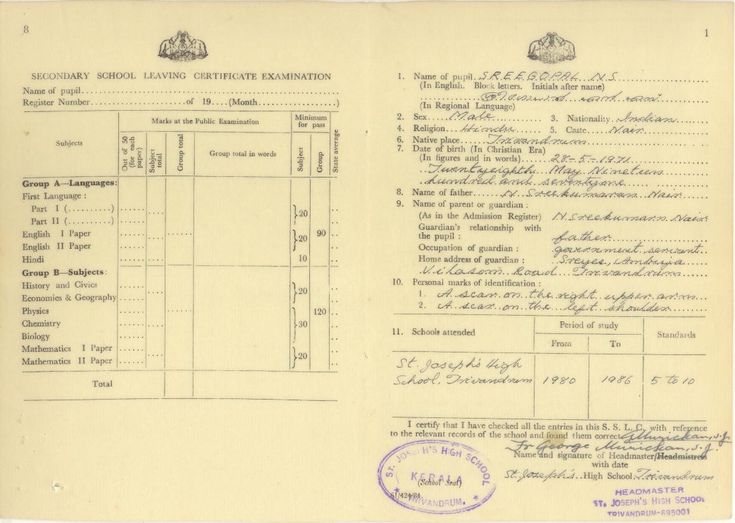 8
SECONDARY SCHOOL LEAVING CERTIFICATE EXAMINATION
Name of pupil
Register Number of 19 (Month )
Subjects
Marks at the Public Examination
Minimum for pass
Out of 50 (for each paper)
Subject total
Group total
Group total in words
Subject
Group
State average
Group A—Languages:
First Language :
Part I (..........)
Part II (..........)
20
English I Paper
90
English II Paper
20
Hindi
10
Group B—Subjects:
History and Civics
Economics & Geography
20
Physics
120
Chemistry
30
Biology
Mathematics I Paper
Mathematics II Paper
20
Total
1
1. Name of pupil SREEGOPAL N.S
(In English. Block letters. Initials after name)
(In Regional Language)
2. Sex Male 3. Nationality Indian
4. Religion Hindu 5. Caste Nair
6. Native place Trivandrum
7. Date of birth (In Christian Era)
(In figures and in words) 28-5-1971
Twentyeighth May Nineteen
hundred and seventyone
8. Name of father N. Sreekumaran Nair
9. Name of parent or guardian :
(As in the Admission Register) N.Sreekumaran Nair
Guardian's relationship with
the pupil : father
Occupation of guardian : government servent
Home address of guardian : Sreyes, Ambuja
Vilasom Road Trivandrum
10. Personal marks of identification :
1. A scar on the right upper arm
2. A scar on the left shoulder
11. Schools attended
Period of study
From
To
Standards
St. Joseph's High
School, Trivandrum 1980 1986 5 to 10
I certify that I have checked all the entries in this S. S. L. C. with reference
to the relevant records of the school and found them correct
Fr George Murickan, s.j.
Name and signature of Headmaster/Headmistress
with date
St. Joseph's High School, Trivandrum
(School Seal)
ST. JOSEPH'S HIGH SCHOOL
KERALA
TRIVANDRUM
HEADMASTER
ST. JOSEPH'S HIGH SCHOOL
TRIVANDRUM-695001